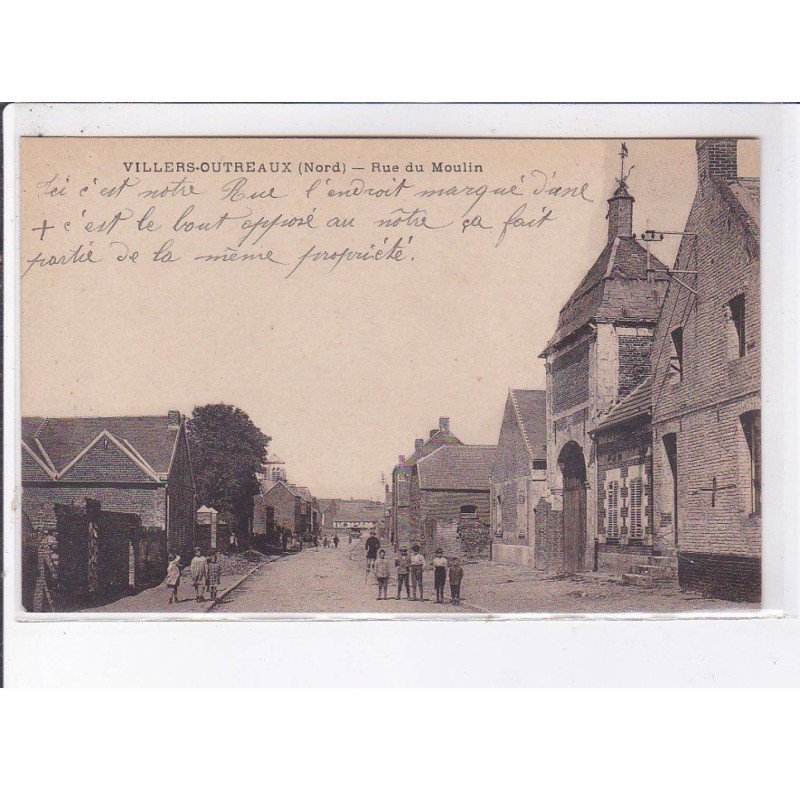 VILLERS-OUTREAUX (Nord) — Rue du Moulin
Ici c'est notre Rue l'endroit marqué d'une
+ c'est le bout opposé au nôtre ça fait
partie de la même propriété.